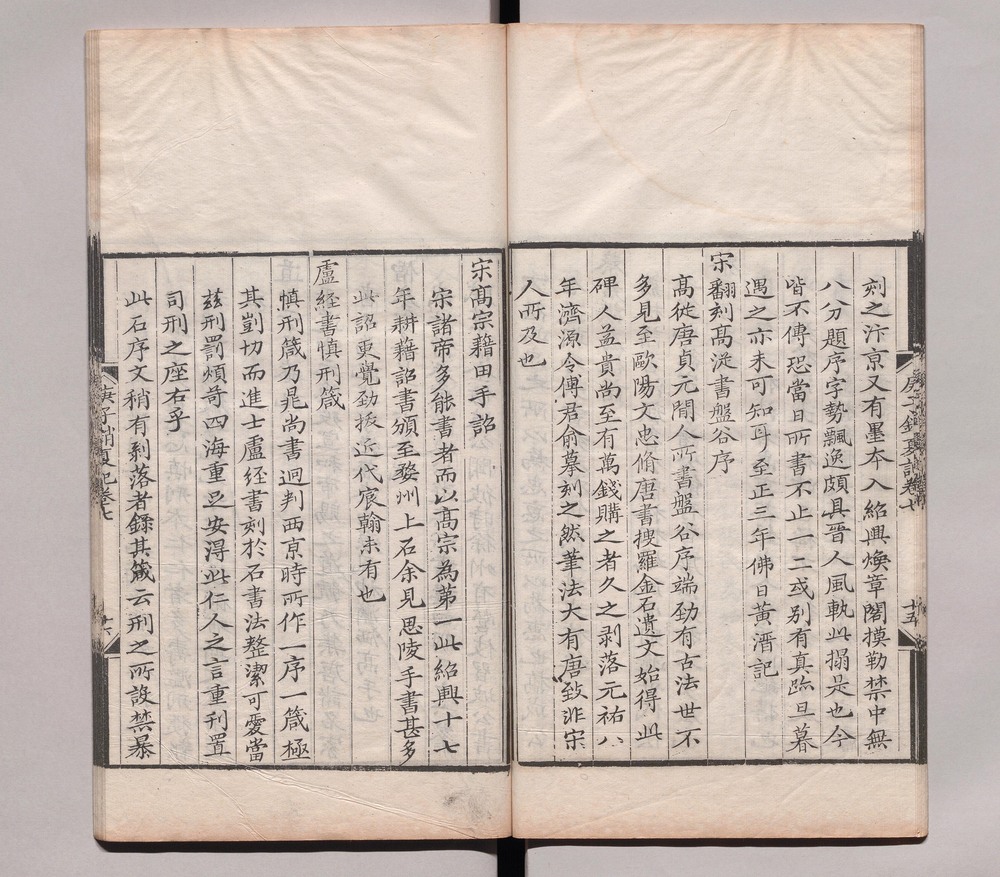 刻之汴京又有墨本入紹興煥章閣摸勒禁中無
八分題序字勢飄逸頗具晉人風軌此搨是也今
皆不傳恐當日所書不止一二或别有真跡旦暮
遇之亦未可知耳至正三年佛日黃溍記
宋翻刻髙從書盤谷序
髙從唐貞元間人所書盤谷序端勁有古法世不
多見至歐陽文忠脩唐書搜羅金石遺文始得此
碑人益貴尚至有萬錢購之者久之剥落元祐八
年濟源令傅君俞摹刻之然筆法大有唐致非宋
人所及也
庚子銷夏記卷七
十五
宋髙宗藉田手詔
宋諸帝多能書者而以髙宗為苐一此紹興十七
年耕藉詔書頒至婺州上石余見思陵手書甚多
此詔更覺勁拔近代宸翰未有也
盧經書慎刑箴
慎刑箴乃晁尚書迥判西京時所作一序一箴極
其剴切而進士盧經書刻於石書法整潔可愛當
兹刑罰煩苛四海重足安得此仁人之言重刊置
司刑之座右乎
此石序文稍有剥落者錄其箴云刑之所設禁暴
庚子銷夏記卷七
十六